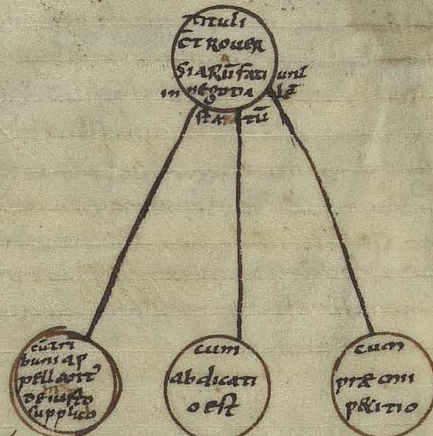 tituli
c̄trover
siarū faci unt
in negotia lē
stat tū
cū tri
buni ap
pellant᷑
de iusto
supplicio
cum
abdicati
o est
cum
præconi
petitio